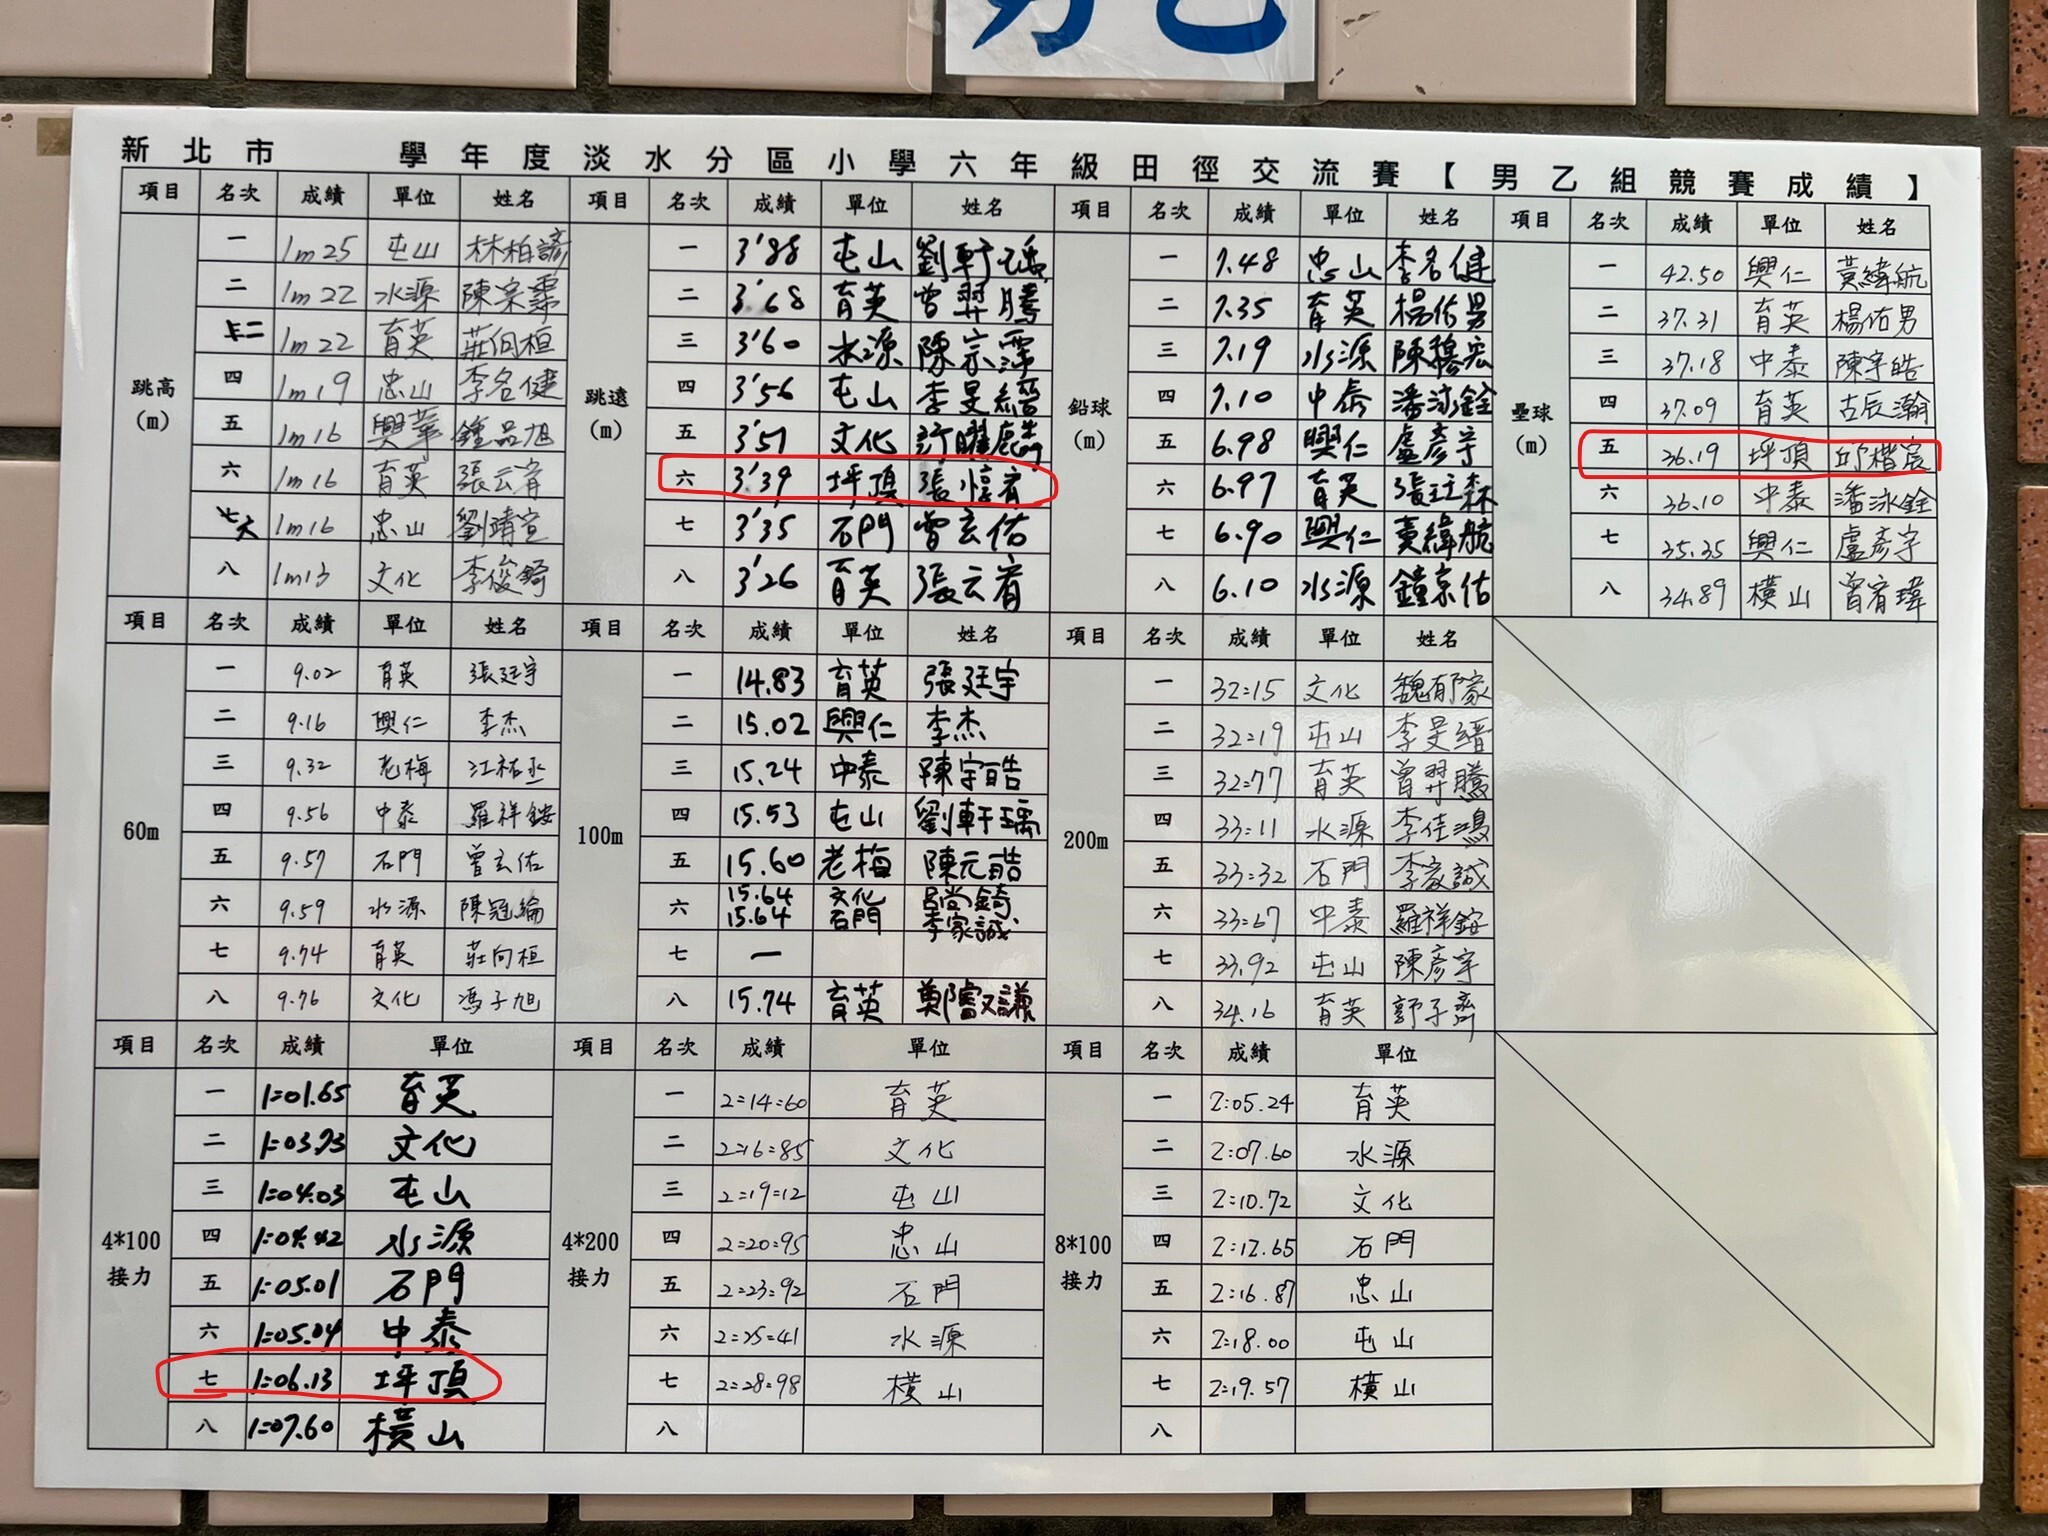 男乙
新北市 學年度淡水分區小學六年級田徑交流賽【男乙組競賽成績】
項目 名次 成績 單位 姓名 項目 名次 成績 單位 姓名 項目 名次 成績 單位 姓名 項目 名次 成績 單位 姓名
跳高(m) 跳遠(m) 鉛球(m) 壘球(m)
一 1m25 屯山 林柏諺 一 3'88 屯山 劉軒瑀 一 7.48 忠山 李名健 一 42.50 興仁 黃緯航
二 1m22 水源 陳宗霈 二 3'68 育英 曾羿騰 二 7.35 育英 楊佑男 二 37.31 育英 楊佑男
二 1m22 育英 莊向桓 三 3'60 水源 陳宗霈 三 7.19 水源 陳穆宏 三 37.18 中泰 陳宇皓
四 1m19 忠山 李名健 四 3'56 屯山 李旻縉 四 7.10 中泰 潘泳銓 四 37.09 育英 古辰瀚
五 1m16 興華 鍾品旭 五 3'51 文化 許曜 五 6.98 興仁 盧彥宇 五 36.19 坪頂 邱楷宸
六 1m16 育英 張云宥 六 3'39 坪頂 張惇宥 六 6.97 育英 張珏森 六 36.10 中泰 潘泳銓
六 1m16 忠山 劉靖宣 七 3'35 石門 曾玄佑 七 6.90 興仁 黃緯航 七 35.35 興仁 盧彥宇
八 1m13 文化 李俊錡 八 3'26 育英 張云宥 八 6.10 水源 鐘京佑 八 34.89 橫山 曾宥瑋
項目 名次 成績 單位 姓名 項目 名次 成績 單位 姓名 項目 名次 成績 單位 姓名
60m 100m 200m
一 9.02 育英 張廷宇 一 14.83 育英 張廷宇 一 32:15 文化 魏郁家
二 9.16 興仁 李杰 二 15.02 興仁 李杰 二 32:19 屯山 李旻縉
三 9.32 老梅 江祐丞 三 15.24 中泰 陳宇皓 三 32:77 育英 曾羿騰
四 9.56 中泰 羅祥銨 四 15.53 屯山 劉軒瑀 四 33:11 水源 李佳鴻
五 9.57 石門 曾玄佑 五 15.60 老梅 陳元皓 五 33:32 石門 李家誠
六 9.59 水源 陳冠綸 六 15.64 文化 呂尚錡 六 33:67 中泰 羅祥銨
15.64 石門 李家誠
七 9.74 育英 莊向桓 七 — 七 33.92 屯山 陳彥宇
八 9.76 文化 馮子旭 八 15.74 育英 鄭睿謙 八 34.16 育英 郭子齊
項目 名次 成績 單位 項目 名次 成績 單位 項目 名次 成績 單位
4*100接力 4*200接力 8*100接力
一 1:01.65 育英 一 2:14:60 育英 一 2:05.24 育英
二 1:03.73 文化 二 2:16:85 文化 二 2:07.60 水源
三 1:04.03 屯山 三 2:19:12 屯山 三 2:10.72 文化
四 1:04.42 水源 四 2:20:95 忠山 四 2:12.65 石門
五 1:05.01 石門 五 2:23:92 石門 五 2:16.87 忠山
六 1:05.04 中泰 六 2:25:41 水源 六 2:18.00 屯山
七 1:06.13 坪頂 七 2:28:98 橫山 七 2:19.57 橫山
八 1:07.60 橫山 八 八